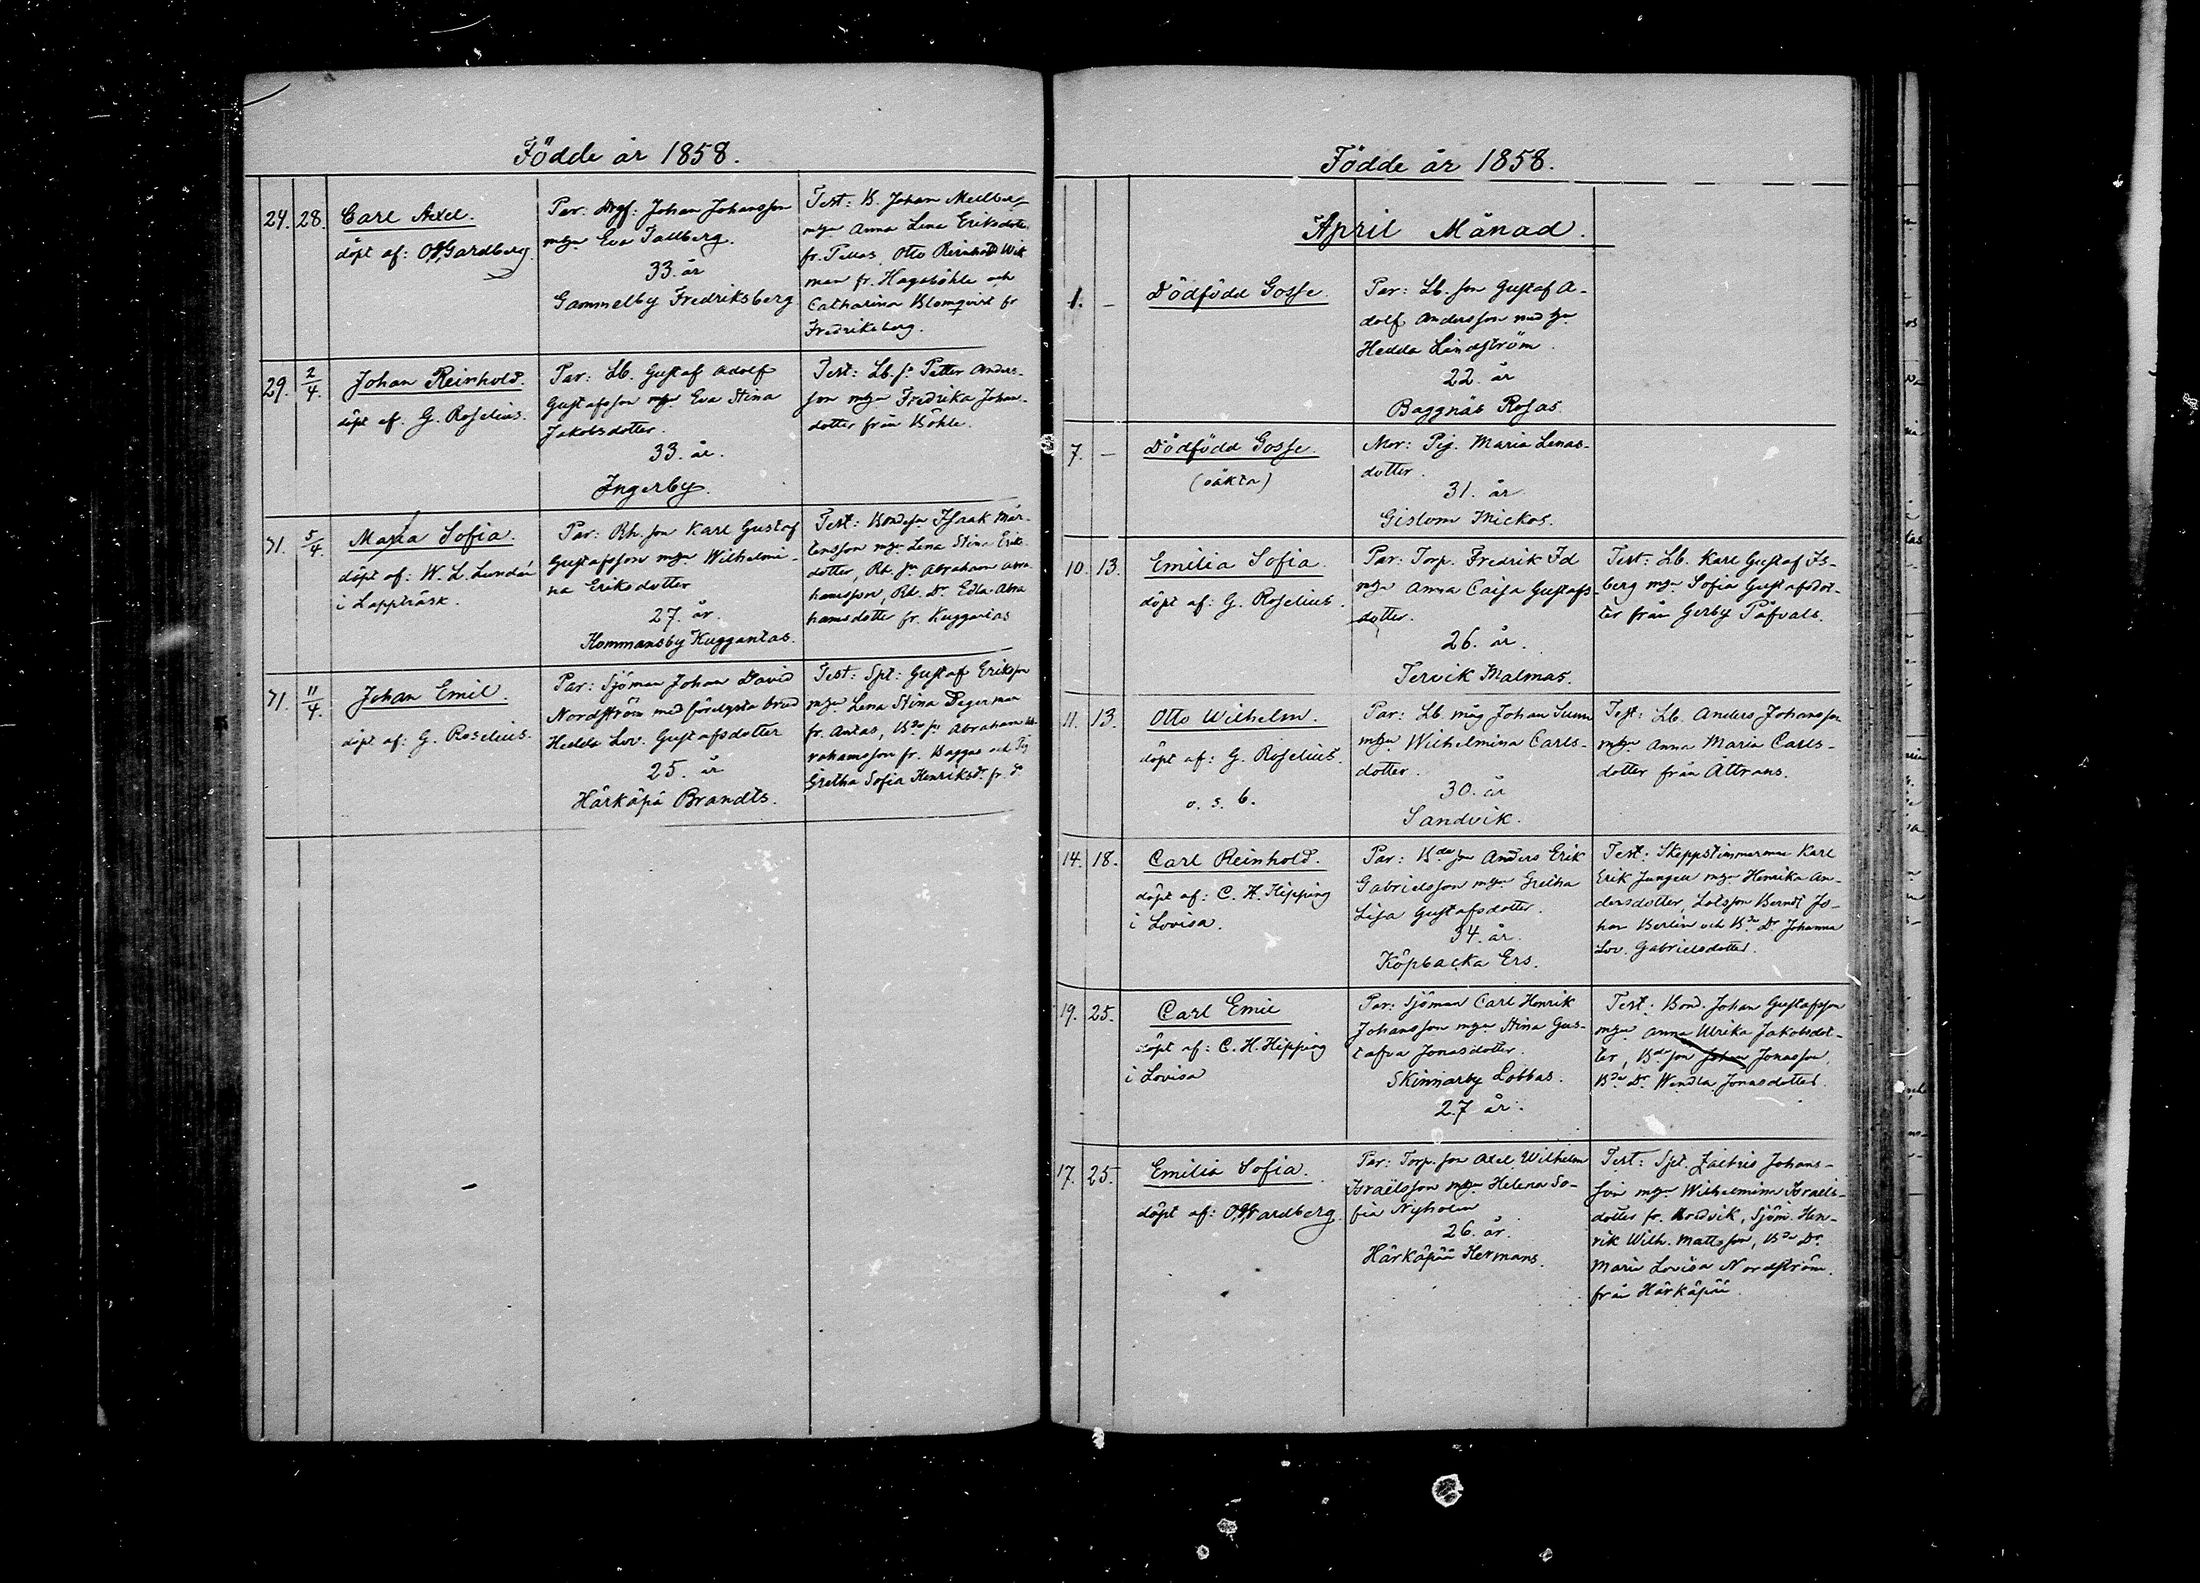 Födde år 1858.
24. 28. Carl Axel.
döpt af: O. Gardberg.
Par: Drgf: Johan Johansson
mhu Eva Tallberg.
33. år
Gammelby Fredriksberg
Test: B. Johan Mellber
mhu Anna Lena Eriksdott.
fr. Tellas, Otto Reinhold Wik
man fr. Hagaböhle och
Catharina Blomqvist fr
Fredriksberg.
29. 2/4 Johan Reinhold.
döpt af. G. Roselius.
Par: Lb. Gustaf Adolf
Gustafsson mhu Eva Stina
Jakobsdotter.
33. år.
Ingerby.
Test: Lb. sn Petter Anders-
son mhu Fredrika Johan-
dotter från Böhle.
31. 5/4. Maria Sofia.
döpt af: W. L. Lundén
i Lappträsk.
Par: Rh. son Karl Gustaf
Gustafsson mhu Wilhelmi-
na Eriksdotter
27. år.
Hommansby Kuggantas.
Test: Bondesn Isaak Mår-
tensson mhu Lena Stina Eriks
dotter, Rh. sn Abraham Abra
hamsson, Rh. Dr. Edla Abra
hamsdotter fr. Kuggantas
31. 11/4. Johan Emil.
döpt af: G. Roselius.
Par: Sjöman Johan David
Nordström med förelysta brud
Hedda Lov. Gustafsdotter
25. år
Härkäpä Brandts.
Test: Spt: Gustaf Eriksson
mhu Lena Stina Degerman
fr. Antas, Bde sn Abraham Ab
rahamsson fr. Baggas och Pig
Gretha Sofia Henriksdr. fr. d:
Födde år 1858.
April Månad.
1. – Dödfödd Gosse.
Par: Lb. son Gustaf A-
dolf Andersson med hu
Hedda Lindström.
22. år
Baggnäs Rosas
7. – Dödfödd Gosse.
(oäkta)
Mor: Pig. Maria Lenas-
dotter.
31. år
Gislom Mickos.
10. 13. Emilia Sofia.
döpt af: G. Roselius.
Par: Torp. Fredrik Id
mhu Anna Caisa Gustafs-
dotter.
26. år.
Tervik Malmas.
Test: Lb. Karl Gustaf Is-
berg mhu Sofia Gustafsdot-
ter från Gerby Påfvals.
11. 13. Otto Wilhelm.
döpt af: G. Roselius.
o. s. b.
Par: Lb. måg Johan Sunn
mhu Wilhelmina Carls-
dotter.
30. år
Sandvik.
Test: Lb. Anders Johansson
mhu Anna Maria Carls-
dotter från Åttrans.
14. 18. Carl Reinhold.
döpt af: C. H. Hipping
i Lovisa.
Par: Bde sn Anders Erik
Gabrielsson mhu Gretha
Lisa Gustafsdotter.
34. år.
Köpbacka Ers.
Test: Skeppstimmerman Karl
Erik Jungell mhu Henrika An-
dersdotter, Lotsson Berndt Jo-
han Berlin och Bde Dr Johanna
Lov. Gabrielsdotter.
19. 25. Carl Emil
döpt af: C. H. Hipping
i Lovisa
Par: Sjöman Carl Henrik
Johansson mhu Stina Gus-
tafva Jonasdotter.
Skinnarby Lobbas.
27 år.
Test: Bond. Johan Gustafsson
mhu Anna Ulrika Jakobsdot-
ter, Bde son Johan Jonasson,
Bde Dr. Wendla Jonasdotter.
17. 25. Emilia Sofia.
döpt af: O. Gardberg.
Par: Torp. son Axel Wilhelm
Israëlsson mhu Helena So-
fia Nyholm
26. år.
Härkäpää Hermans.
Test: Spt. Zachris Johans-
son mhu Wilhelmina Israels-
dotter fr. Bredvik, Sjöm. Hen-
rik Wilh. Mattsson, Bde Dr.
Maria Lovisa Nordström
från Härkäpää.